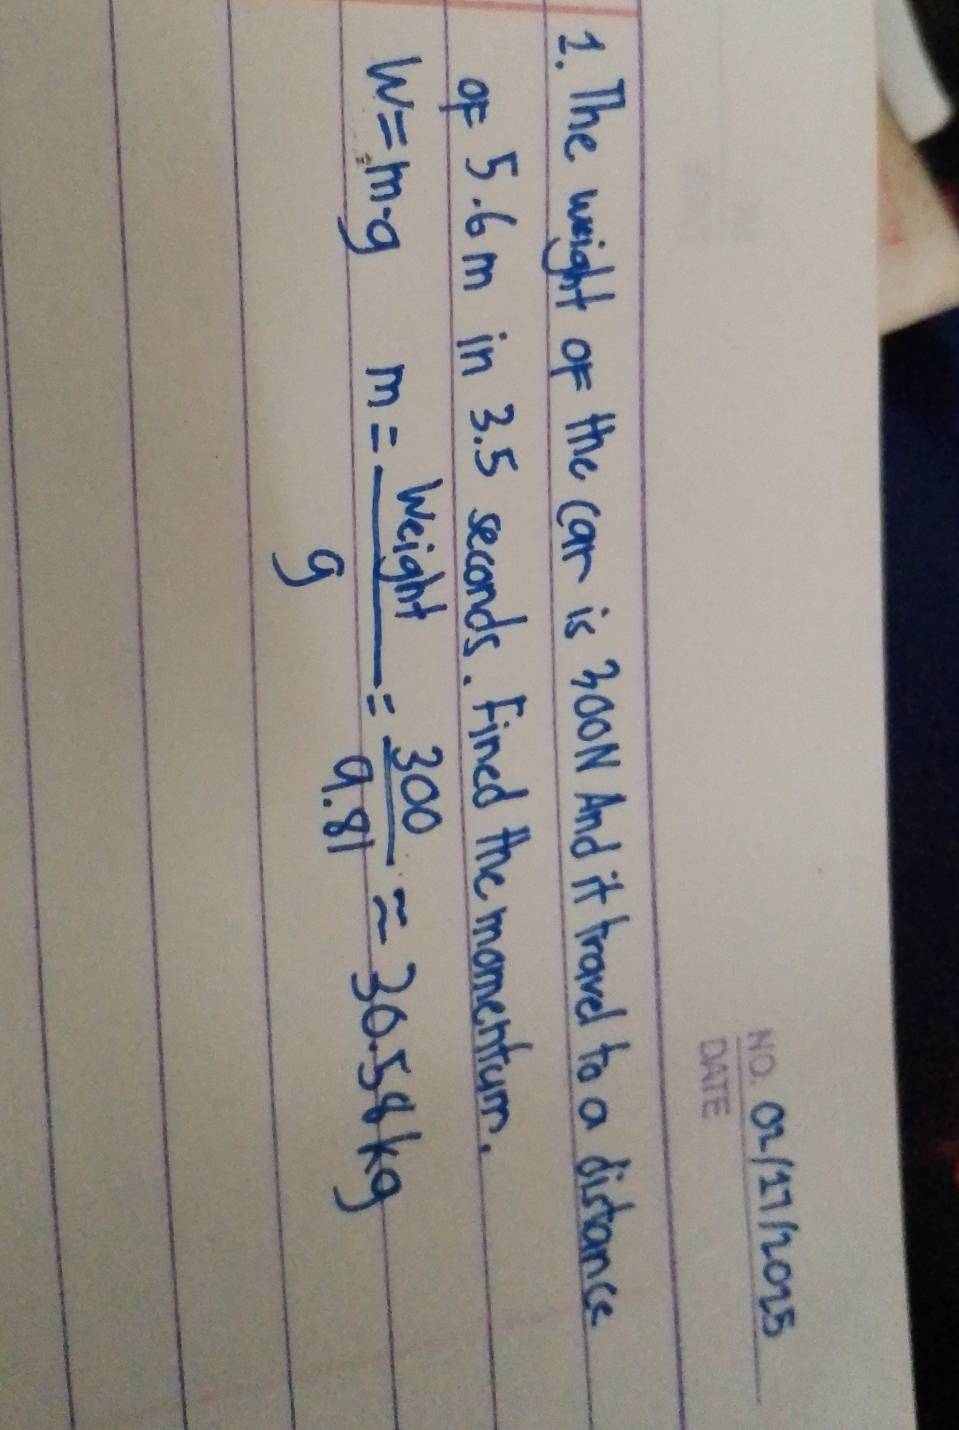 NO. 02/17/2025
DATE
1. The weight of the car is 300N And it travel to a distance
of 5.6 m in 3.5 seconds. Fined the momentum.
W=m·g m= Weight/g = 300/9.81 ≈ 30.58 kg